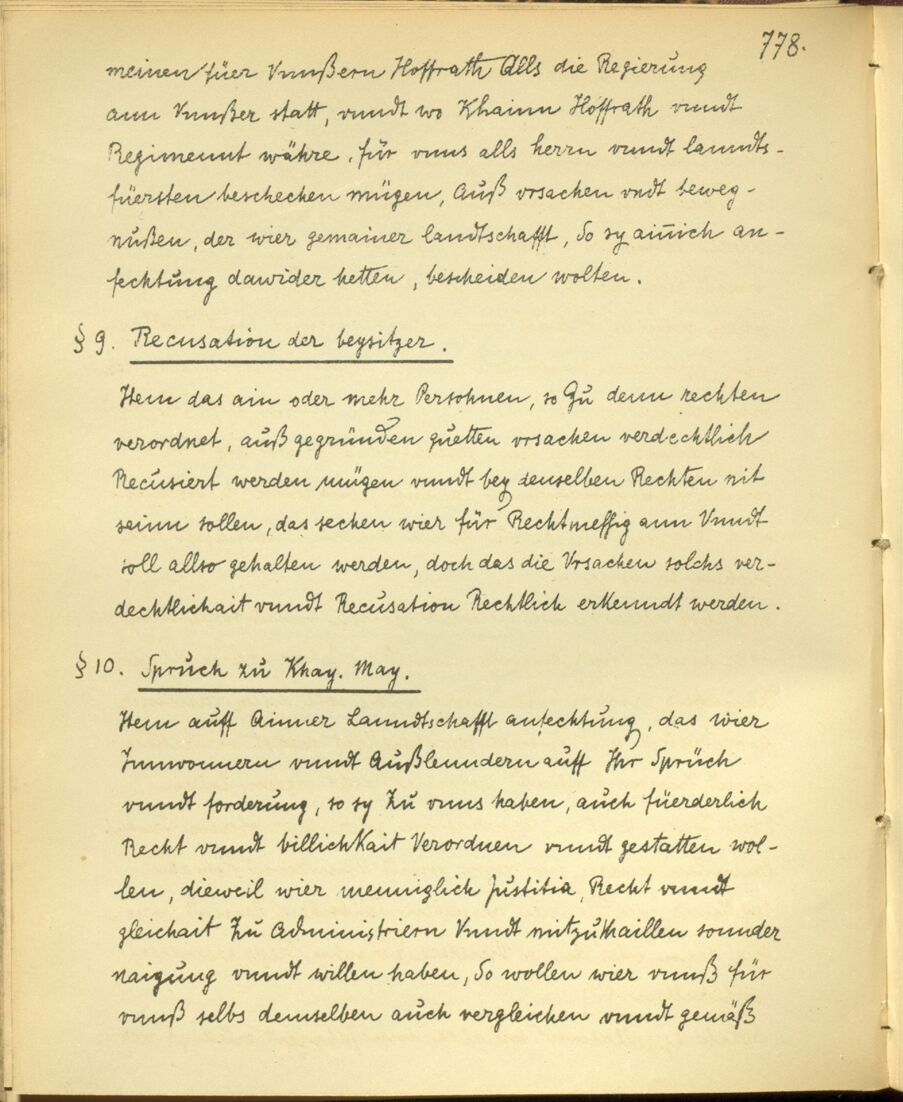 778.
meinen füer Vnnßern Hoffrath Alls die Regierung
ann Vnnßer statt, vnndt wo Khainn Hoffrath vnndt
Regimennt währe, für vnns alls herrn vnndt lanndts-
füersten beschechen mügen, Auß vrsachen vndt beweg-
nußen, der wier gemainer landtschafft, So sy ainich an-
fechtung dawider hetten, bescheiden wolten.
§ 9. Recusation der beysitzer.
Item das ain oder mehr Persohnen, so Zu denn rechten
verordnet, auß gegründen guetten vrsachen verdechtlich
Recusiert werden mügen vnndt bey denselben Rechten nit
seinn sollen, das sechen wier für Rechtmessig ann Vnndt
soll allso gehalten werden, doch das die Vrsachen solchs ver-
dechtlichait vnndt Recusation Rechtlich erkenndt werden.
§ 10. Spruch zu Khay. May.
Item auff Ainner Lanndtschafft anfechtung, das wier
Innwonnern vnndt Außlenndern auff Ihr Sprüch
vnndt forderung, so sy Zu vnns haben, auch füerderlich
Recht vnndt billichkait Verordnen vnndt gestatten wol-
len, dieweil wier menniglich Justitia, Recht vnndt
gleichait Zu Administriern Vnndt mitzuthaillen sonnder
naigung vnndt willen haben, So wollen wier vnnß für
vnnß selbs demselben auch vergleichen vnndt gemäß